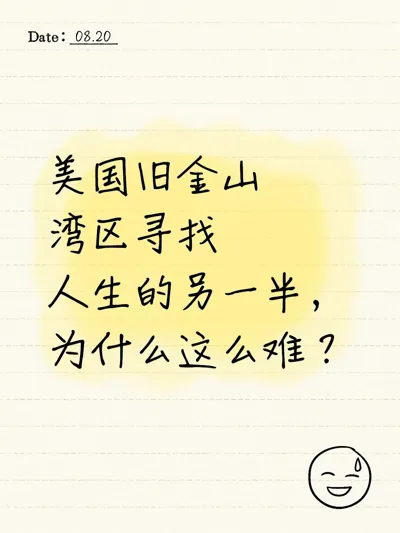 Date: 08.20
美国旧金山
湾区寻找
人生的另一半，
为什么这么难？